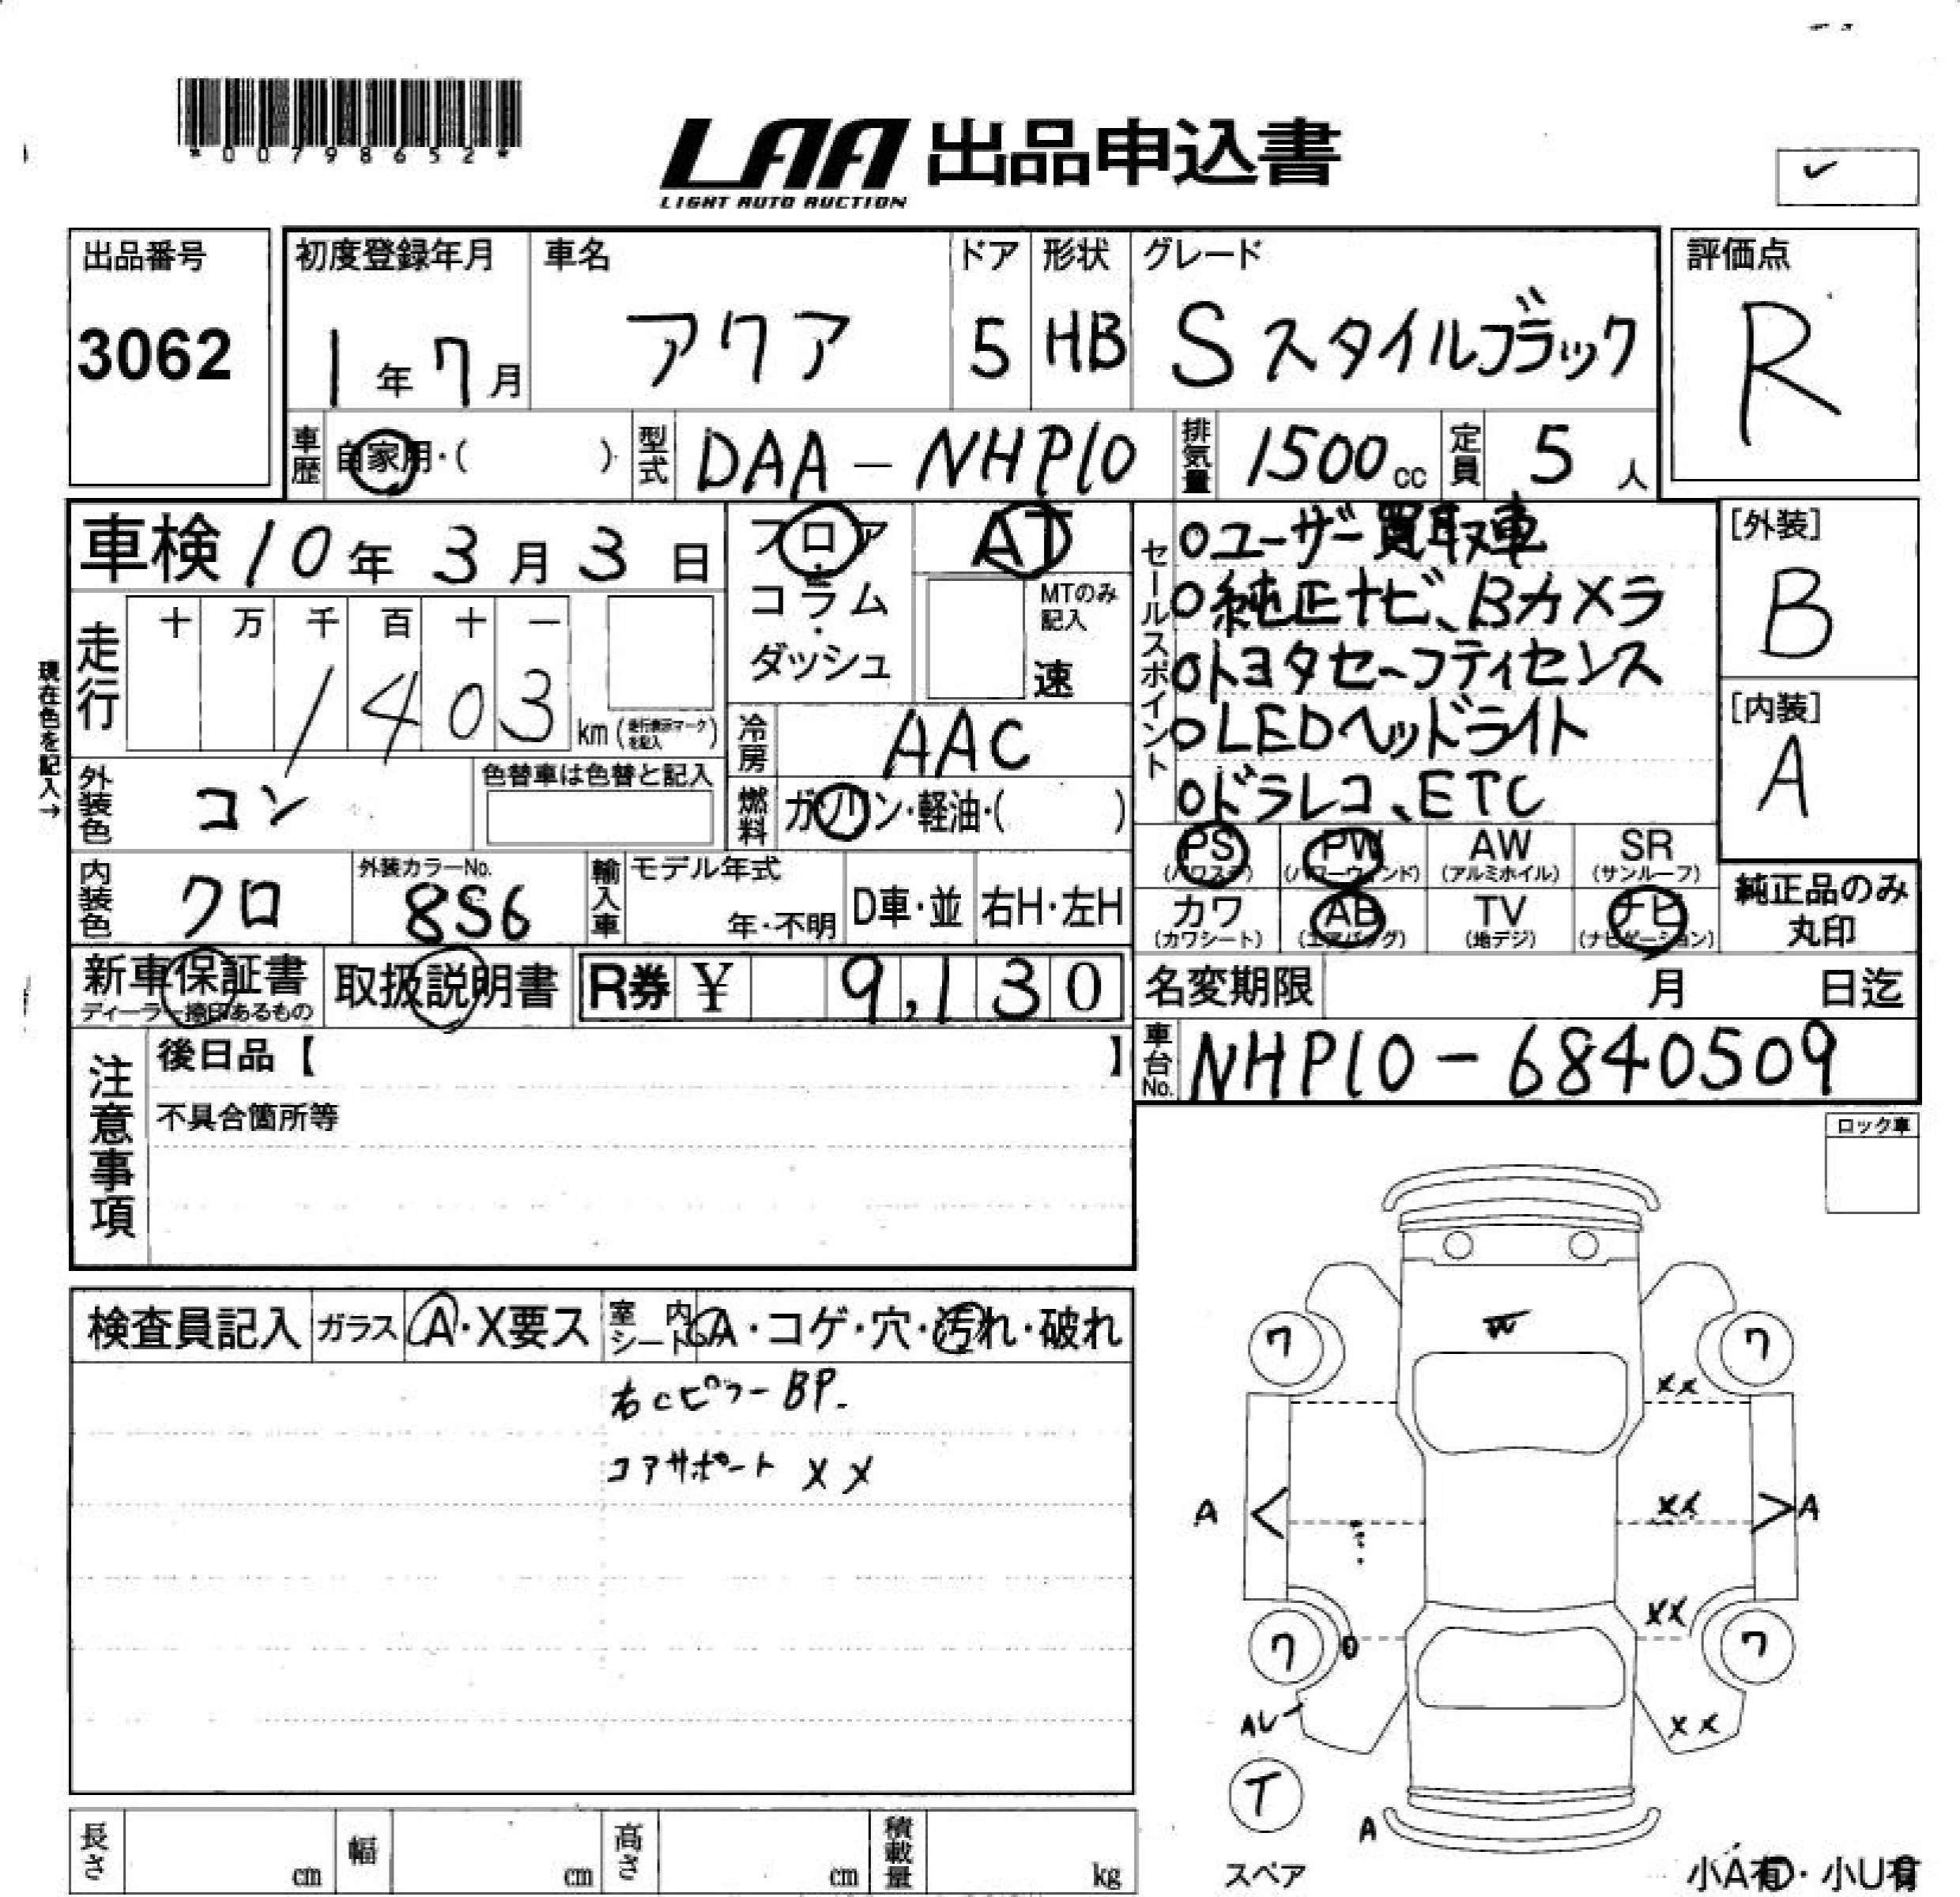 *00798652*
LAA 出品申込書
LIGHT AUTO AUCTION
出品番号
3062
初度登録年月
1年7月
車名
アクア
ドア
5
形状
HB
グレード
Sスタイルブラック
評価点
R
車歴
自家用・( )
型式
DAA-NHP10
排気量
1500cc
定員
5人
車検10年3月3日
フロア
・
コラム
・
ダッシュ
AT
MTのみ記入
速
セールスポイント
○ユーザー買取車
○純正ナビ、Bカメラ
○トヨタセーフティセンス
○LEDヘッドライト
○ドラレコ、ETC
[外装]
B
[内装]
A
現在色を記入→
走行
十 万 千 百 十 一
1403
km(走行表示マークを記入)
冷房
AAC
燃料
ガソリン・軽油・( )
外装色
コン
色替車は色替と記入
内装色
クロ
外装カラーNo.
8S6
輸入車
モデル年式
年・不明
D車・並
右H・左H
PS
(パワステ)
PW
(パワーウィンド)
AW
(アルミホイル)
SR
(サンルーフ)
カワ
(カワシート)
AB
(エアバッグ)
TV
(地デジ)
ナビ
(ナビゲーション)
純正品のみ
丸印
新車保証書
ディーラー捺印あるもの
取扱説明書
R券 ¥ 9,130
名変期限
月 日迄
車台No.
NHP10-6840509
注意事項
後日品【 】
不具合箇所等
ロック車
検査員記入
ガラス
A・X要ス
室内シート
A・コゲ・穴・汚れ・破れ
右Cピラー BP.
コアサポート XX
W
ワ
ワ
XX
A
<
XX
>
A
XX
ワ
ワ
AU
XX
T
スペア
A
長さ
cm
幅
cm
高さ
cm
積載量
kg
小A有・小U有